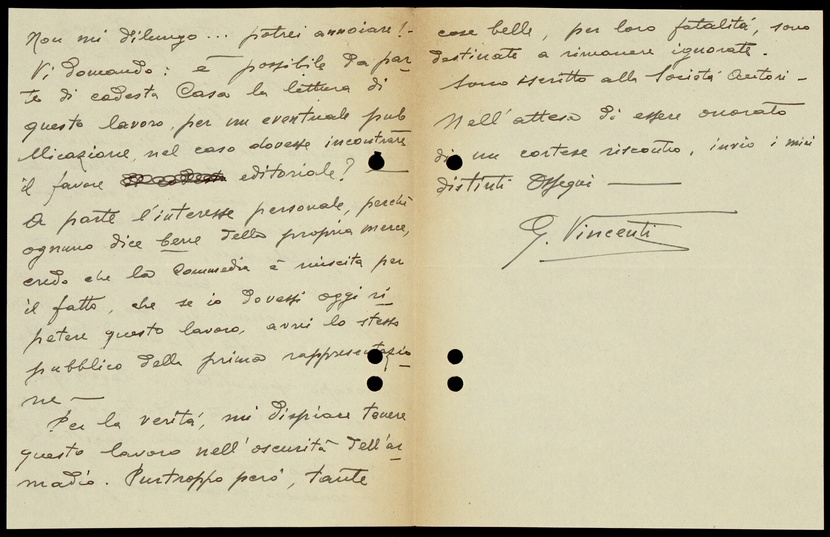 Non mi dilungo... potrei annoiare!-
Vi domando: è possibile da par-
te di codesta Casa la lettura di
questo lavoro, per un eventuale pub
blicazione, nel caso dovesse incontrare
il favore editoriale? —
A parte l'interesse personale, perchè
ognuno dice bene della propria merce,
credo che la Commedia è riuscita per
il fatto, che se io dovessi oggi ri-
petere questo lavoro, avrei lo stesso
pubblico della prima rappresentazio
ne —
Per la verità, mi dispiace tenere
questo lavoro nell'oscurità dell'ar-
madio. Purtroppo però, tante
cose belle, per loro fatalità, sono
destinate a rimanere ignorate.
Sono iscritto alla Società Autori -
Nell'attesa di essere onorato
di un cortese riscontro, invio i miei
distinti Ossequi —
G. Vincenti